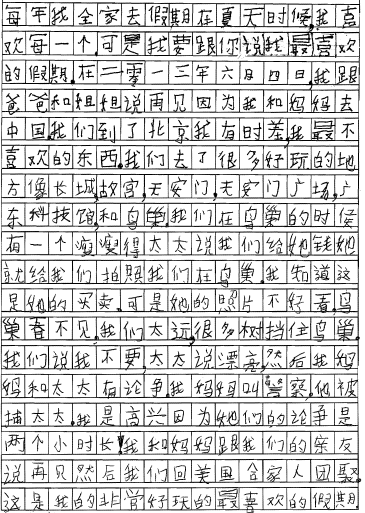 每年我全家去假期在夏天时候,我喜
欢每一个.可是我要跟你说我最喜欢
的假期.在二零一三年六月四日,我跟
爸爸和姐姐说再见因为我和妈妈去
中国.我们到了北京我有时差,我最不
喜欢的东西.我们去了很多好玩的地
方像长城,故宫,天安门,天安门广场,广
东科技馆,和鸟巢.我们在鸟巢的时候
有一个瘦瘦得太太说我们给她钱她
就给我们拍照我们在鸟巢.我知道这
是她的买卖.可是她的照片不好看,鸟
巢看不见,我们太远,很多树挡住鸟巢.
我们说我不要,太太说漂亮,然后我妈
妈和太太有论争.我妈妈叫警察.他被
捕太太.我是高兴因为她们的论争是
两个小时长!我和妈妈跟我们的亲友
说再见然后我们回美国全家人团聚.
这是我的非常好玩的最喜欢的假期.